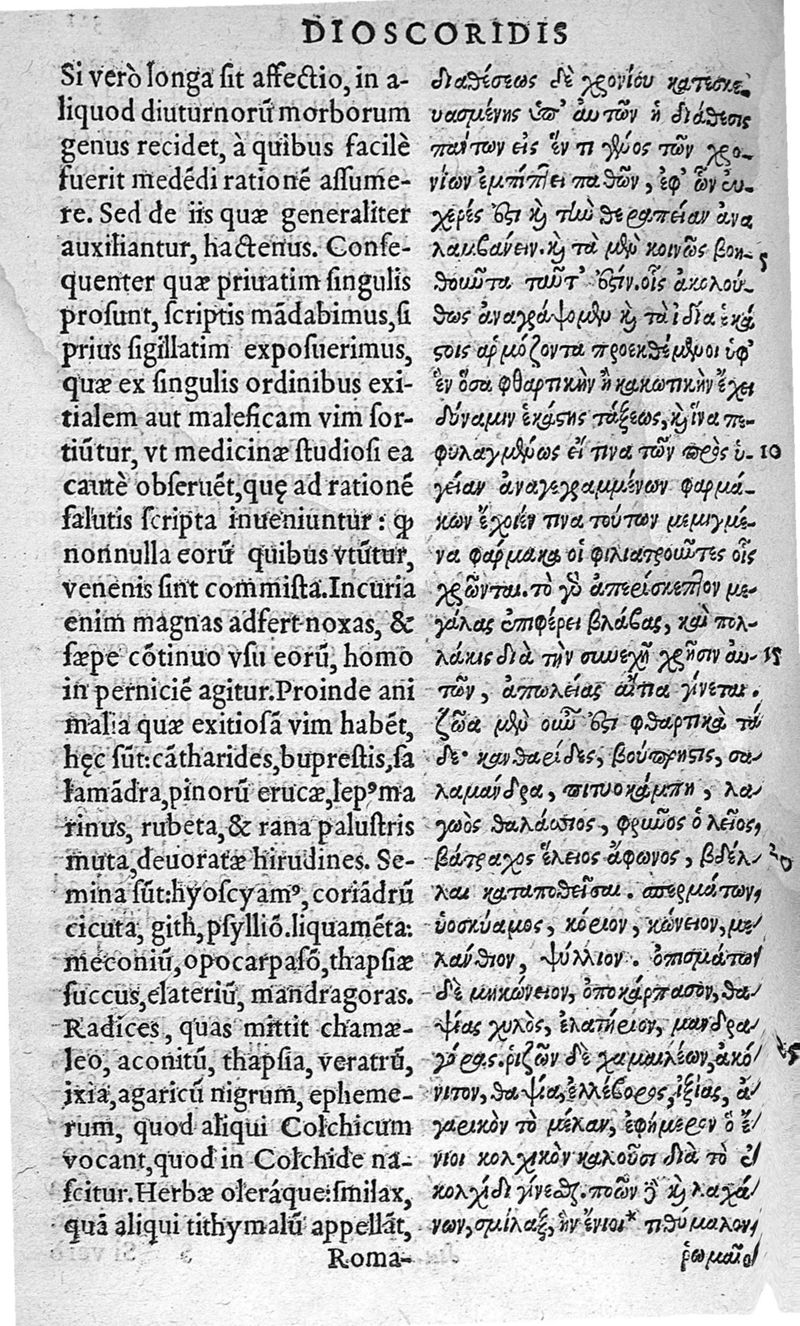 DIOSCORIDIS
Si verò longa ſit affectio, in a-
liquod diuturnorũ morborum
genus recidet, à quibus facilè
fuerit medẽdi rationẽ aſſume-
re. Sed de iis quæ generaliter
auxiliantur, hactenus. Conſe-
quenter quæ priuatim ſingulis
proſunt, ſcriptis mãdabimus, ſi
prius ſigillatim expoſuerimus,
quæ ex ſingulis ordinibus exi-
tialem aut maleficam vim ſor-
tiũtur, vt medicinæ ſtudioſi ea
cautè obſeruẽt, quę ad rationẽ
ſalutis ſcripta inueniuntur: ꝙ
nonnulla eorũ quibus vtũtur,
venenis ſint commiſta. Incuria
enim magnas adfert noxas, &
ſæpe cõtinuo vſu eorũ, homo
in perniciẽ agitur. Proinde ani
malia quæ exitioſã vim habẽt,
hęc ſũt: cãtharides, bupreſtis, ſa
lamãdra, pinorũ erucæ, lepꝰ ma
rinus, rubeta, & rana paluſtris
muta, deuoratæ hirudines. Se-
mina ſũt: hyoſcyamꝰ, coriãdrũ
cicuta, gith, pſylliõ. liquamẽta:
meconiũ, opocarpaſõ, thapſiæ
ſuccus, elateriũ, mandragoras.
Radices, quas mittit chamæ-
leo, aconitũ, thapſia, veratrũ,
ixia, agaricũ nigrum, epheme-
rum, quod aliqui Colchicum
vocant, quod in Colchide na-
ſcitur. Herbæ oleráque: ſmilax,
quã aliqui tithymalũ appellãt,
Roma-
διαθέσεως δὲ χρονίου κατεσκε-
υασμένης ὑπ' αυτῶν ἡ διάθεσις
πάντων εἰς ἕν τι γένος τῶν χρο-
νίων ἐμπίπτει παθῶν, ἐφ' ὧν εὐ-
χερές ἐστι καὶ τὴν θεραπείαν ἀνα
λαμβάνειν. καὶ τὰ μὲν κοινῶς βοη- 5
θοῦντα ταῦτ' ἐστίν. οἷς ἀκολού-
θως ἀναγράψομεν καὶ τὰ ἰδία ἑκά
στοις αρμόζοντα προεκθέμενοι ὑφ'
ἓν ὅσα φθαρτικὴν ἢ κακωτικὴν ἔχει
δύναμιν ἑκάστης τάξεως, καὶ ἵνα πε-
φυλαγμένως εἴ τινα τῶν πρὸς ὑ- 10
γείαν ἀναγεγραμμένων φαρμά-
κων ἔχοιέν τινα τούτων μεμιγμέ-
να φάρμακα οἱ φιλιατροῦντες οἷς
χρῶνται. τὸ γὸ ἀπερίσκεπτον με-
γάλας ἐπιφέρει βλάβας, καὶ πολ-
λάκις διὰ τὴν συνεχῆ χρῆσιν αὐ- 15
τῶν, ἀπωλείας αἴτια γίνεται.
ζῶα μὲν οὖν ἐστι φθαρτικὰ τά
δε· κανθαρίδες, βούπρηστις, σα-
λαμάνδρα, πιτυοκάμπη, λα-
γωὸς θαλάσσιος, φρῦνος ὁ λεῖος,
βάτραχος ἕλειος ἄφωνος, βδέλ- 20
λαι καταποθεῖσαι. σπερμάτων,
ὑοσκύαμος, κόριον, κώνειον, με-
λάνθιον, ψύλλιον. ὀπισμάτων
δὲ μηκώνειον, ὀποκάρπασὸν, θα-
ψίας χυλὸς, ἐλατήριον, μανδρα-
γόρας. ῥιζῶν δὲ χαμαιλέων, ἀκό- 25
νιτον, θαψία, ἐλλέβορος, ἰξίας, ἀ-
γαρικὸν τὸ μέλαν, ἐφήμερον ὃ ἔ-
νιοι κολχικὸν καλοῦσι διὰ τὸ ἐν
κολχίδι γίνεσθαι. ποῶν δὲ καὶ λαχά-
νων, σμίλαξ, ἣν ἔνιοι* τιθύμαλον,
ῥωμαῖοι